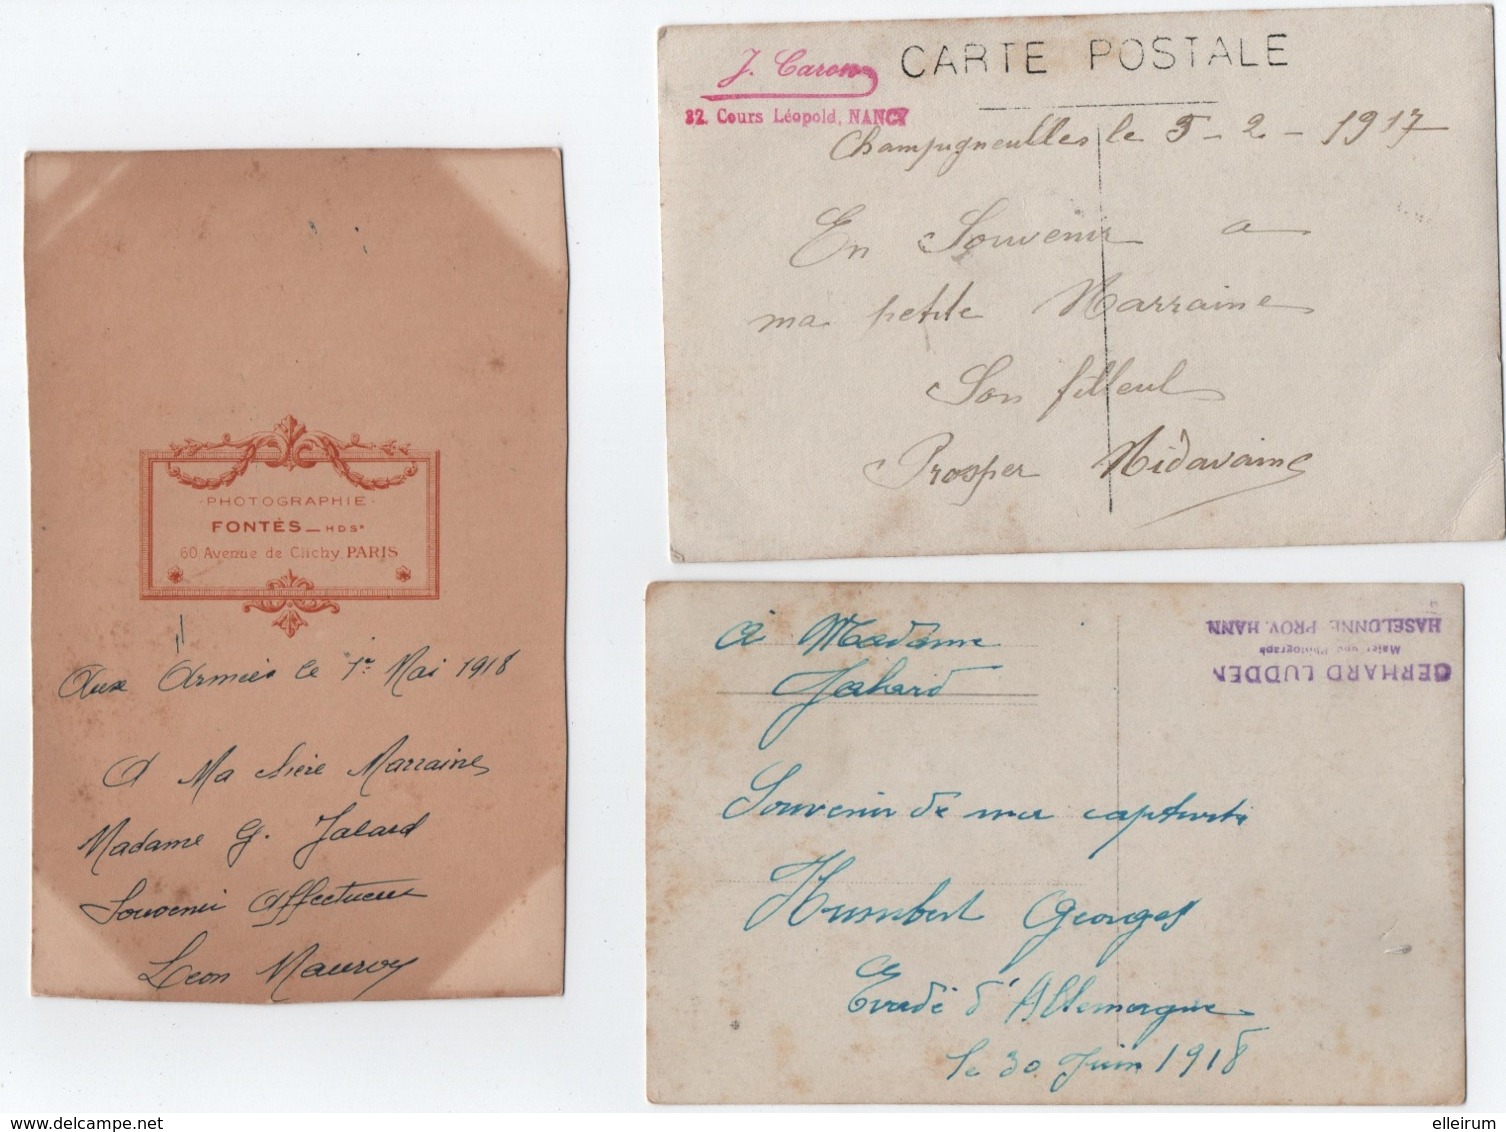 PHOTOGRAPHIE
FONTÈS — HDSR
60 Avenue de Clichy PARIS
Aux Armées le 1er Mai 1918
A Ma chère Marraine
Madame G. Jalard
Souvenir Affectueux
Léon Mauroy
J. Caron
32. Cours Léopold, NANCY
CARTE POSTALE
Champigneulles le 5-2-1917
En Souvenir a
ma petite Marraine
Son filleul
Prosper Midavaine
GERHARD LUDDEN
Maler und Photograph
HASELÜNNE PROV. HANN
à Madame
Jalard
Souvenir de ma captivité
Humbert Georges
Evadé d'Allemagne
le 30 Juin 1918
delcampe.net
elleirum